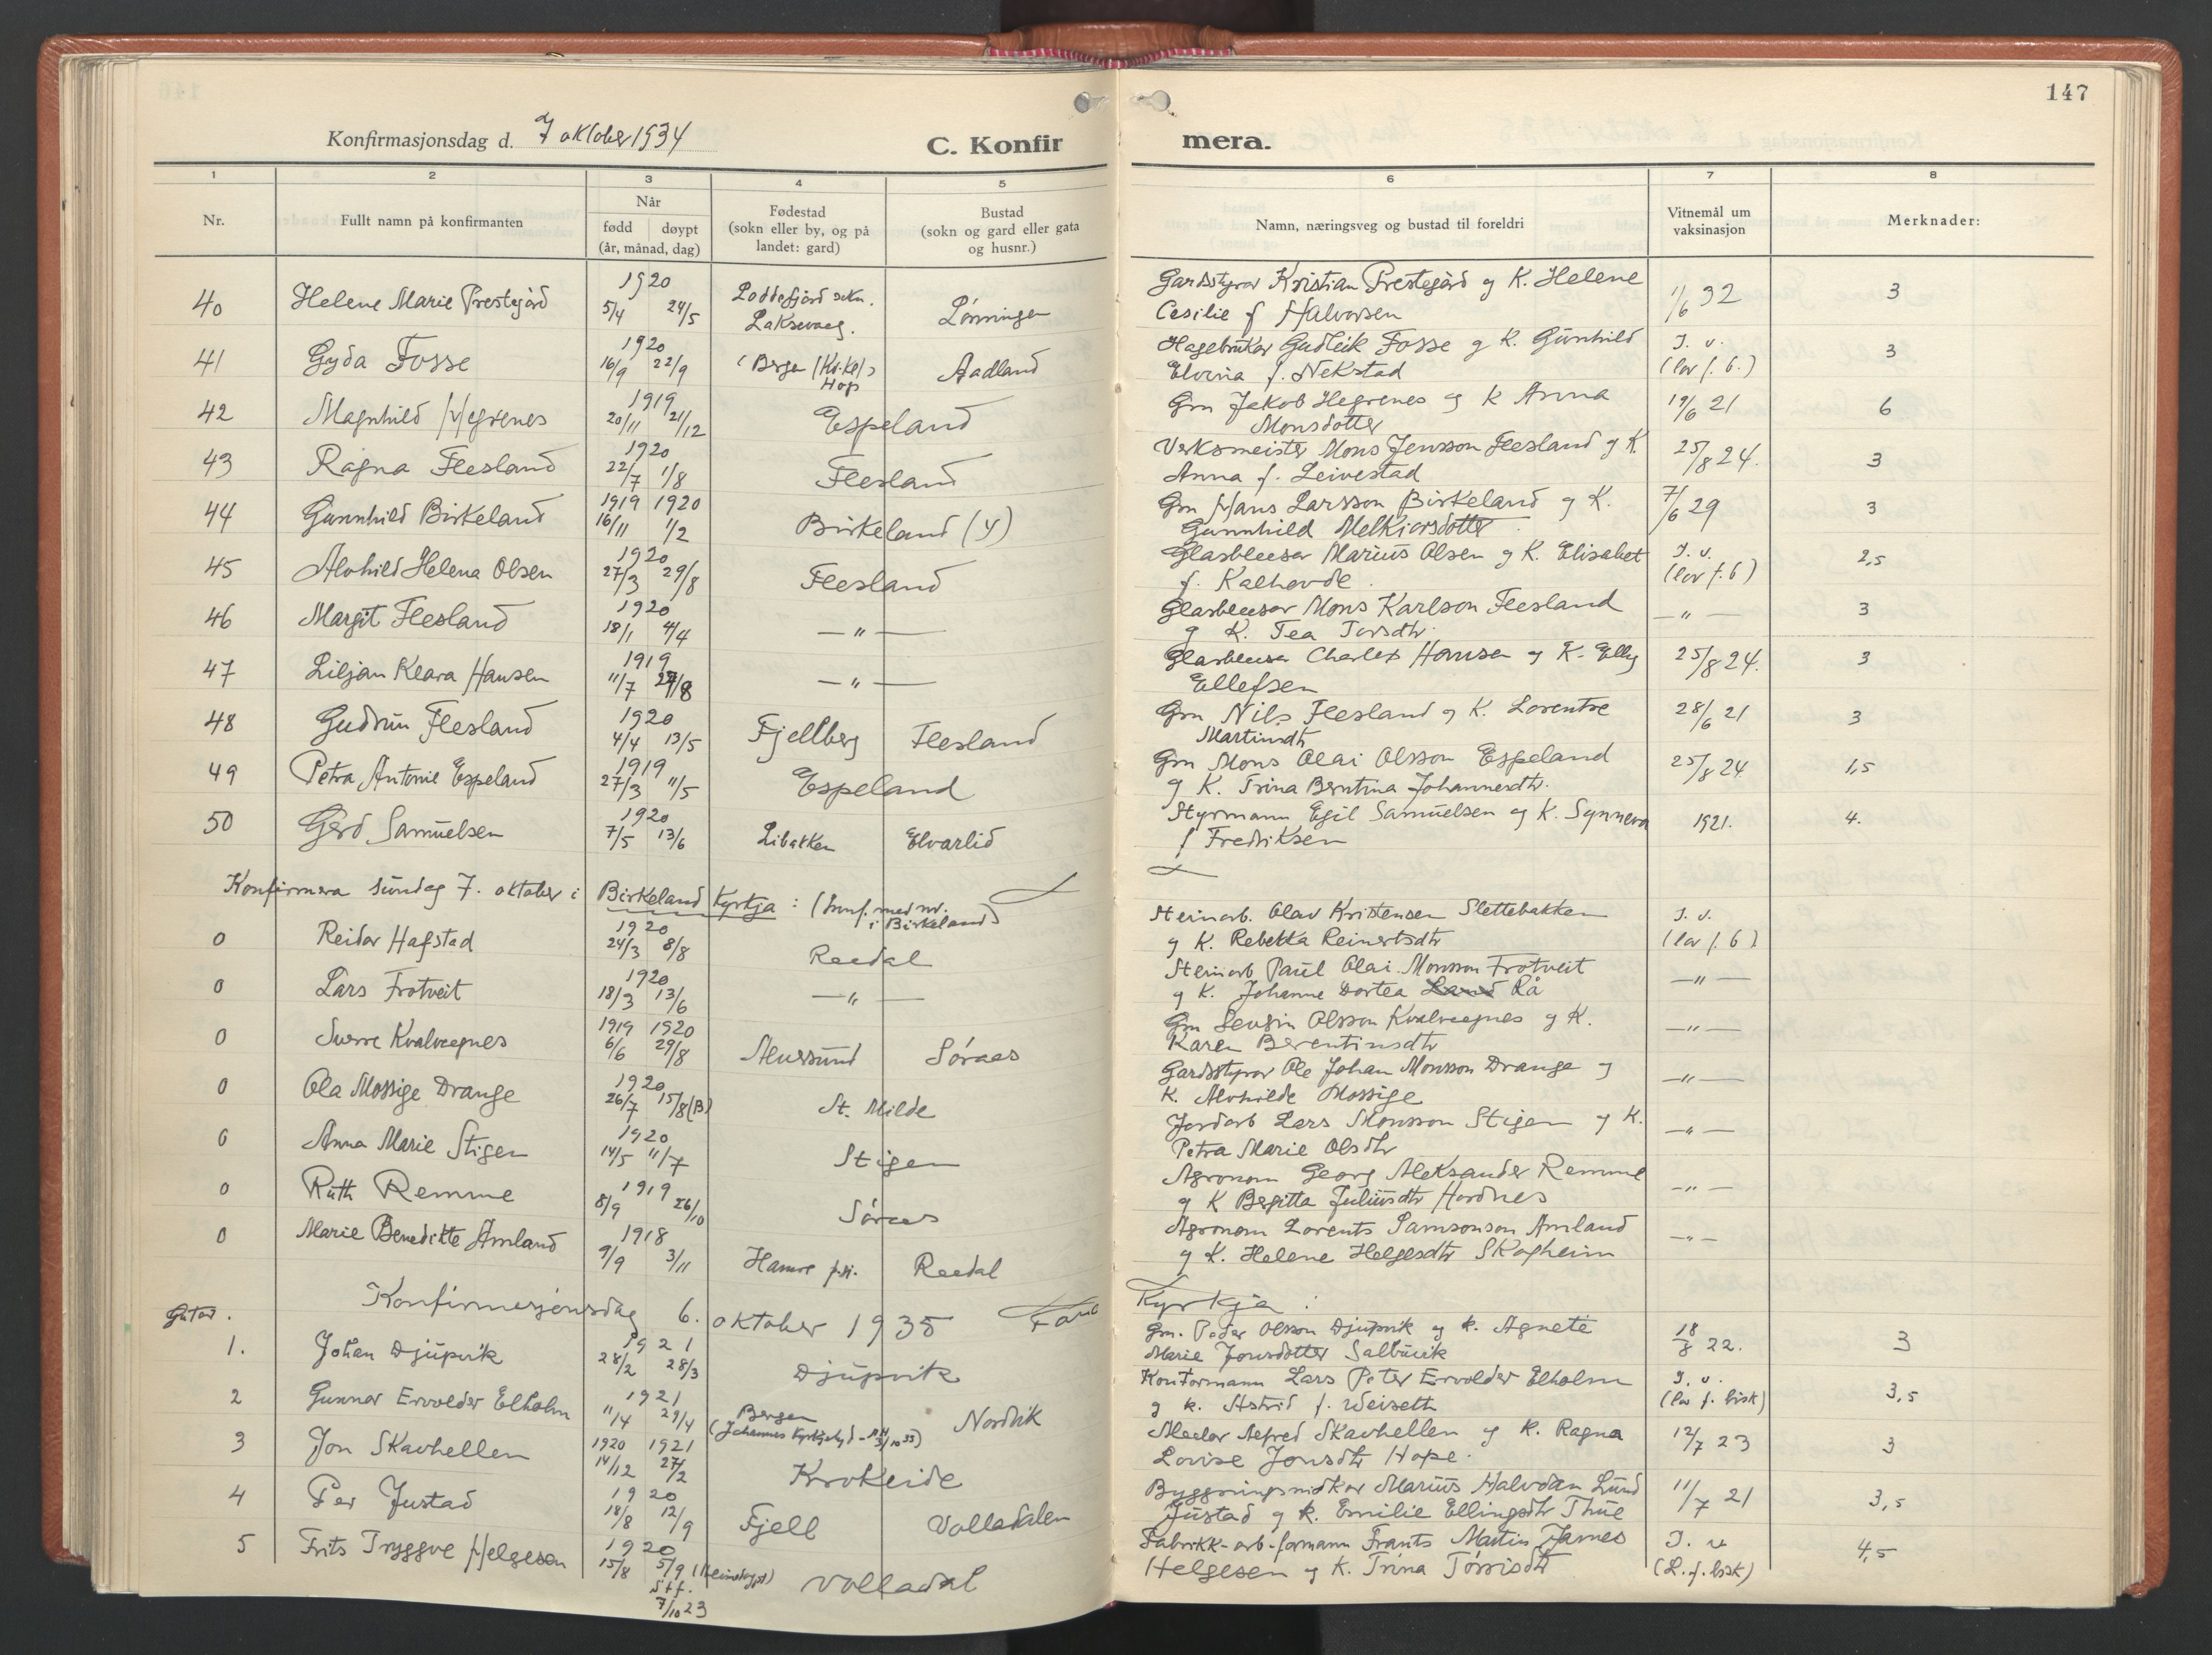 147
Konfirmasjonsdag d. 7 oktober 1934
C. Konfirmera.
1 2 3 4 5 6 7 8
Nr.
Fullt namn på konfirmanten
Når
født døypt
(år, månad, dag)
Fødestad
(sokn eller by, og på
landet: gard)
Bustad
(sokn og gard eller gata
og husnr.)
Namn, næringsveg og bustad til foreldri
Vitnemål um
vaksinasjon
Merknader:
40 Helene Marie Prestegård 1920 5/4 24/5 Loddefjord sokn. Laksevaag. Lønningen Gardsstyrar Kristian Prestegård og K. Helene 11/6 32 3
Cesilie f Halvorsen
41 Gyda Fosse 1920 16/9 22/9 (Bergen (Kr.kl) Hop Aadland Hagebrukar Gudleik Fosse og K. Gunhild I. v. 3
Elvina f. Nekstad (lov f. b.)
42 Magnhild Hegrenes 1919 20/11 21/12 Espeland Gm Jakob Hegrenes og K Anna 19/6 21 6
Monsdotter
43 Ragna Flesland 1920 22/7 1/8 Flesland Verksmeister Mons Jensson Flesland og K. 25/8 24. 3
Anna f. Leivestad
44 Gunnhild Birkeland 1919 1920 16/11 1/2 Birkeland (Y) Gm Hans Larsson Birkeland og K. 7/6 29 3
Gunnhild Melkiorsdotter
45 Alvhild Helena Olsen 1920 27/3 29/8 Flesland Glasbleeser Marius Olsen og K. Elisabet I. v. 2,5
f. Kalhovde. (lov f. b)
46 Margit Flesland 1920 18/1 4/4 — " — Glasbleeser Mons Karlson Flesland — " — 3
og K. Tea Torsdtr.
47 Liljan Klara Hansen 1919 11/7 24/8 — " — Glasbleeser Charles Hansen og K. Elly 25/8 24. 3
Ellefsen
48 Gudrun Flesland 1920 4/4 13/5 Fjellberg Flesland Gm Nils Flesland og K. Lorentse 28/6 21 3
Martinsdtr
49 Petra Antonie Espeland 1919 27/3 11/5 Espeland Gm Mons Olai Olsson Espeland 25/8 24 1,5
og K. Trina Berntina Johannesdtr.
50 Gerd Samuelsen 1920 7/5 13/6 Libakken Elvarlid Styrmann Egil Samuelsen og K. Synneva 1921. 4.
f Fredriksen
Konfirmera sundag 7. oktober i Birkeland Kyrkja: (Innf. med nr. i Birkeland)
0 Reidar Hafstad 1920 24/3 8/8 Reedal Steinarb. Olav Kristensen Slettebakken I. v.
og K. Rebekka Reinertsdtr (lov f. b)
0 Lars Frotveit 1920 18/3 13/6 — " — Steinarb Paul Olai Monsson Frotveit — " —
og K. Johanne Dortea Rå
0 Sverre Kvalvaagnes 1919 1920 6/6 29/8 Alversund Søraas Gm Sevrin Olsson Kvalvaagnes og K. — " —
Karen Berentinsdtr
0 Ola Mossige Drange 1920 26/7 15/8 (B) St. Milde Gardsstyrar Ole Johan Monsson Drange og — " —
K. Alvhilde Mossige
0 Anna Marie Stigen 1920 14/5 11/7 Stigen Jordarb Lars Monsson Stigen og K. — " —
Petra Marie Olsdtr
0 Ruth Remme 1919 8/9 26/10 Søraas Agronom Georg Aleksander Remme — " —
og K Bergitta Juliusdtr Hordnes
0 Marie Benedikte Amland 1918 9/9 3/11 Hamre p.gj. Reedal Agronom Lorents Samsonson Amland — " —
og K. Helene Helgesdtr Skogheim
Konfirmasjonsdag 6. oktober 1935 Fana Kyrkja:
Gutar.
1. Johan Djupvik 1921 28/2 28/3 Djupvik Gm. Peder Olsson Djupvik og K. Agnete 18/8 22. 3
Marie Jonsdotter Salbuvik
2 Gunnar Ervolder Elholm 1921 11/4 29/4 Bergen (Johannes Kyrkjelyd Nordvik Kontormann Lars Peter Ervolder Elholm I. v. 3,5
og K. Astrid f. Weiseth (lov f. bisk)
3 Jon Skavhellen 1920 1921 14/12 27/2 Krokeide Meelar Alfred Skavhellen og K. Ragna 12/7 23 3
Lovise Jonsdtr Hope.
4 Per Justad 1920 18/8 12/9 Fjell Volladalen Byggningssnidkar Marius Halvdan Lund 11/7 21 3,5
Justad og K. Emilie Ellingsdtr Thue
5 Frits Tryggve Helgesen 1920 15/8 5/9 (heimedøypt) Volladal Fabrikk-arb.-formann Frants Martin James I. v 4,5
Stf. 7/10 23 Helgesen og K. Trina Tørrisdtr (L. f. bisk)